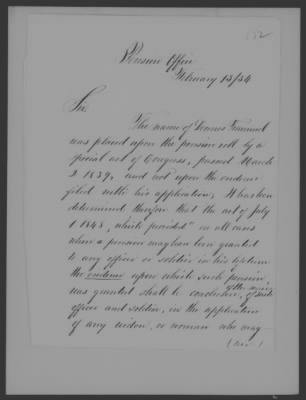 132
Pension Office
February 13/54
Sir
The name of Dennis
was placed upon the pension roll by a
special act of Congress, passed March
2 1839, and not upon the evidence
filed with his application; It has been
determined therefore that the act of July
1 1848, which provides "in all cases
when a pension may have been granted
to any officer or soldier in his lifetime
the evidence upon which such pension
was granted shall be conclusive, of the service of such
officer and soldier, in the application
of any widow, or woman who may